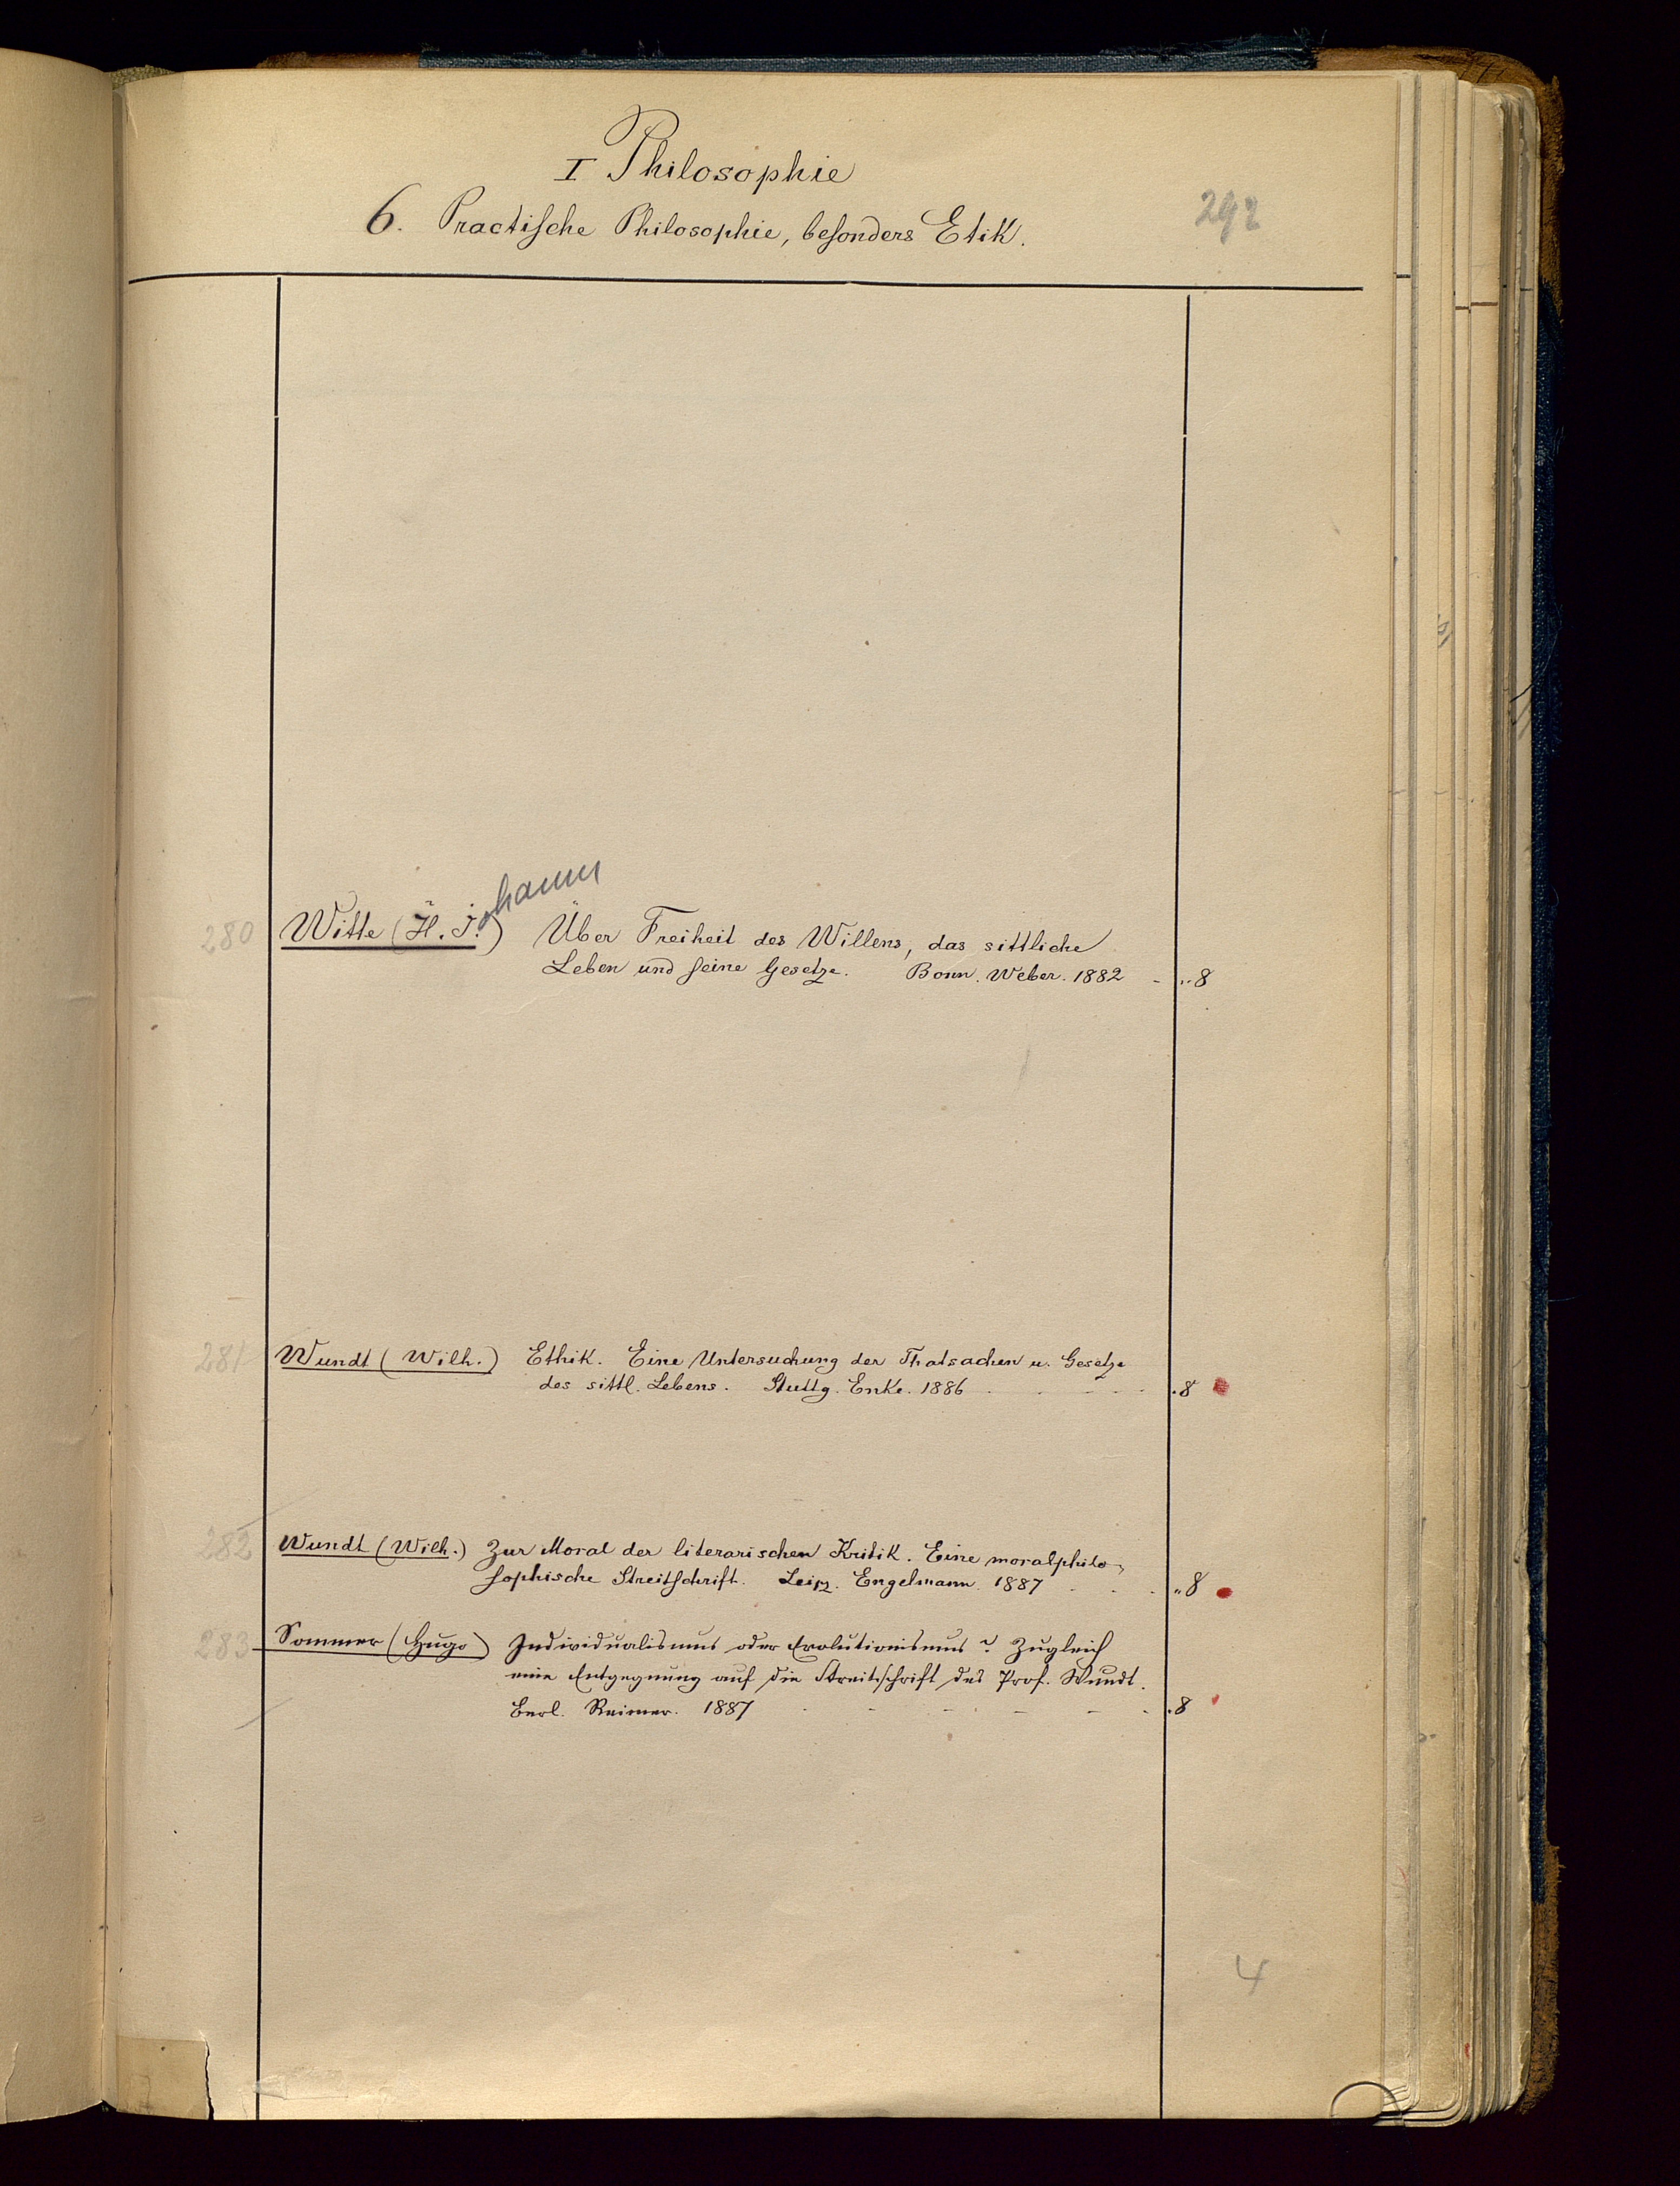 I Philosophie
6. Practische Philosophie, besonders Etik.
292
280 Witte (H. J.) Johann Über Freiheit des Willens, das sittliche
Leben und seine Gesetze. Bonn. Weber. 1882 - „8
281 Wundt (Wilh.) Ethik. Eine Untersuchung der Thatsachen u. Gesetze
des sittl. Lebens. Stuttg. Enke. 1886 . . . . . 8
282 Wundt (Wilh.) Zur Moral der literarischen Kritik. Eine moralphilo-
sophische Streitschrift. Leipz. Engelmann. 1887 . . . „8
283 Sommer (Hugo) Individualismus oder Evolutionismus? Zugleich
eine Entgegnung auf die Streitschrift des Prof. Wundt.
Berl. Reimer. 1887 - - - - - - .8
4